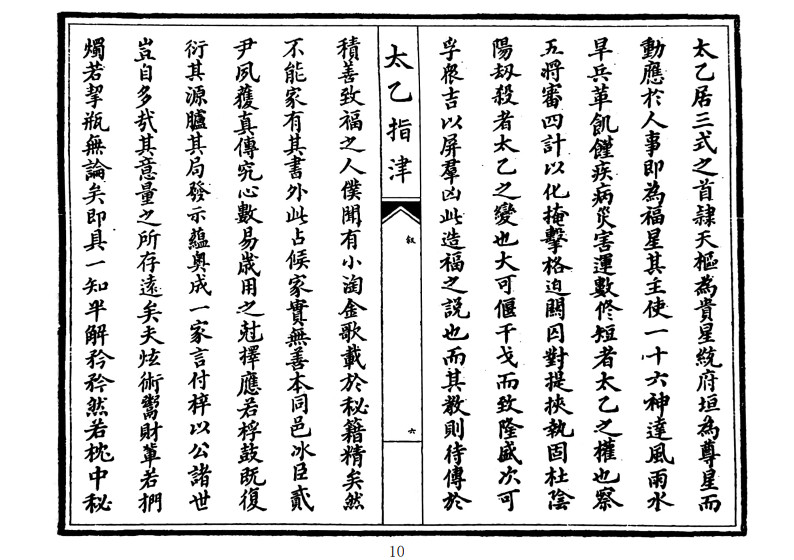 太乙居三式之首隷天樞為貴星統府垣為尊星而
動應於人事即為福星其主使一十六神達風雨水
旱兵革飢饉疾病災害運數修短者太乙之權也察
五將審四計以化掩擊格迫關囚對提挾執固杜陰
陽刼殺者太乙之變也大可偃干戈而致隆盛次可
孚衆吉以屏羣凶此造福之説也而其教則待傳於
太乙指津
叙
六
積善致福之人僕聞有小淘金歌載於秘籍精矣然
不能家有其書外此占候家實無善本同邑冰臣貳
尹夙獲真傳究心數易歲用之尅擇應若桴鼓既復
衍其源臚其局發示蘊奥成一家言付梓以公諸世
豈自多哉其意量之所存遠矣夫炫術鬻財輩若捫
燭若挈瓶無論矣即具一知半解矜矜然若枕中秘
10